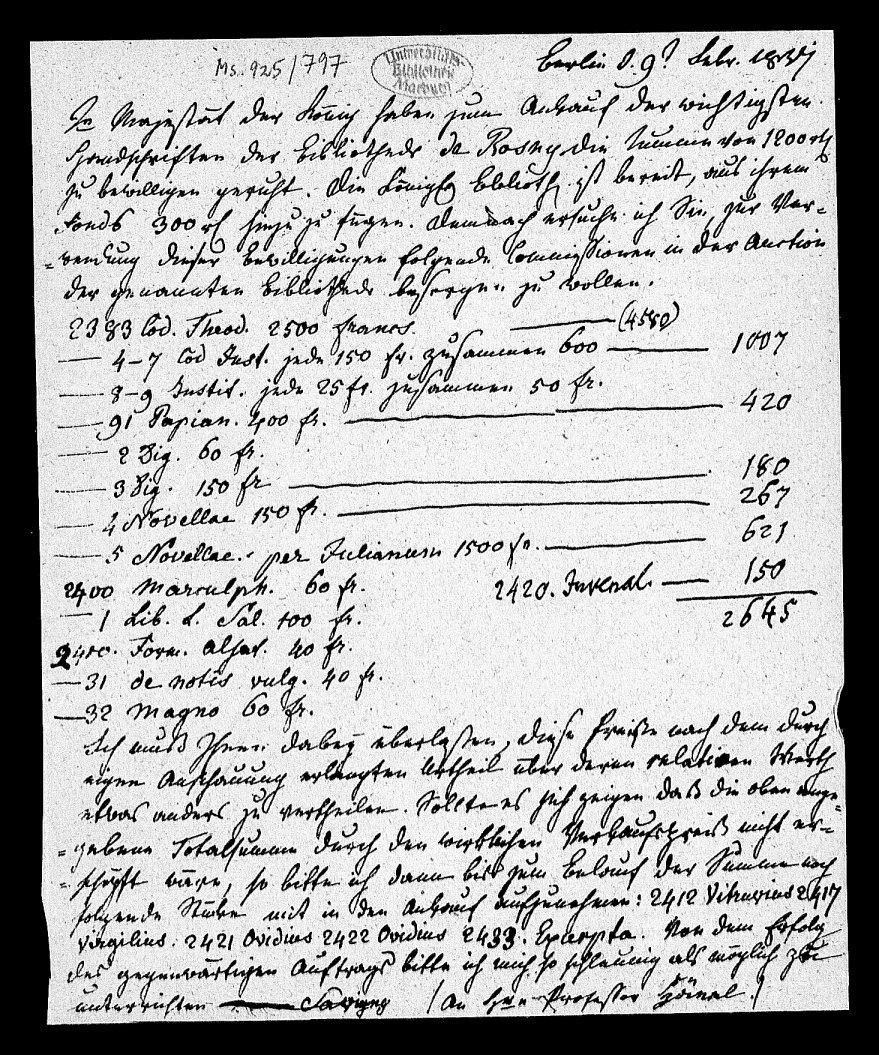 Ms. 925/797
Universitäts
Bibliothek
Marburg
Berlin d. 9t Febr. 1837
Se Majestät der König haben zum Ankauf der wichtigsten
Handschriften der Bibliothek de Rosny die Summe von 1200 rh
zu bewilligen geruht. Die Königl Biblioth. ist bereit, aus ihrem
Fonds 300 rh hinzu zu fügen. Demnach ersuche ich Sie, zur Ver-
=wendung dieser Bewilligungen folgende Commissionen in der Auction
der genannten Bibliothek besorgen zu wollen.
2383 Cod. Theod. 2500 francs. (4580)
— 4-7 Cod Just. jede 150 fr. zusammen 600 — 1007
— 8-9 Instit. jede 25 fr. zusammen 50 fr.
— 91 Papian. 400 fr. — 420
— 2 Dig. 60 fr.
— 3 Dig. 150 fr — 180
— 4 Novellae 150 fr. — 267
— 5 Novellae. per Julianum 1500 fr. — 621
2400 Marculph. 60 fr. 2420. Juvenal. — 150
— 1 Lib. L. Sal. 100 fr. 2645
Form. Alsat. 40 fr.
— 31 de notis vulg. 40 fr.
— 32 Magno 60 fr.
Ich muß Ihnen dabey überlassen, diese Preise nach dem durch
eigne Anschauung erlangten Urtheil über deren relativen Werth
etwas anders zu vertheilen. Sollte es sich zeigen daß die oben ange-
=gebene Totalsumme durch den wirklichen Verkaufspreis nicht er-
=schöpft wäre, so bitte ich dann bis zum Belauf der Summe noch
folgende Stücke mit in den Ankauf aufzunehmen: 2412 Vitruvius 2417
Virgilius. 2421 Ovidius 2422 Ovidius 2433. Excerpta. Von dem Erfolg
des gegenwärtigen Auftrags bitte ich mich so schleunig als möglich zu
unterrichten — Savigny (An Hrn Professor Hänel.)